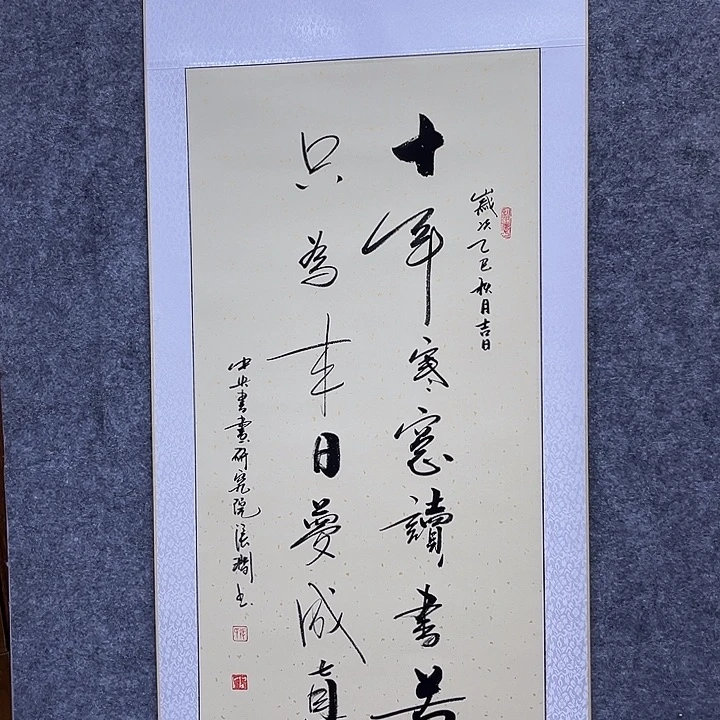 歲次乙巳秋月吉日
十年寒窓讀书苦
只為来日夢成真
中央書畫研究院張